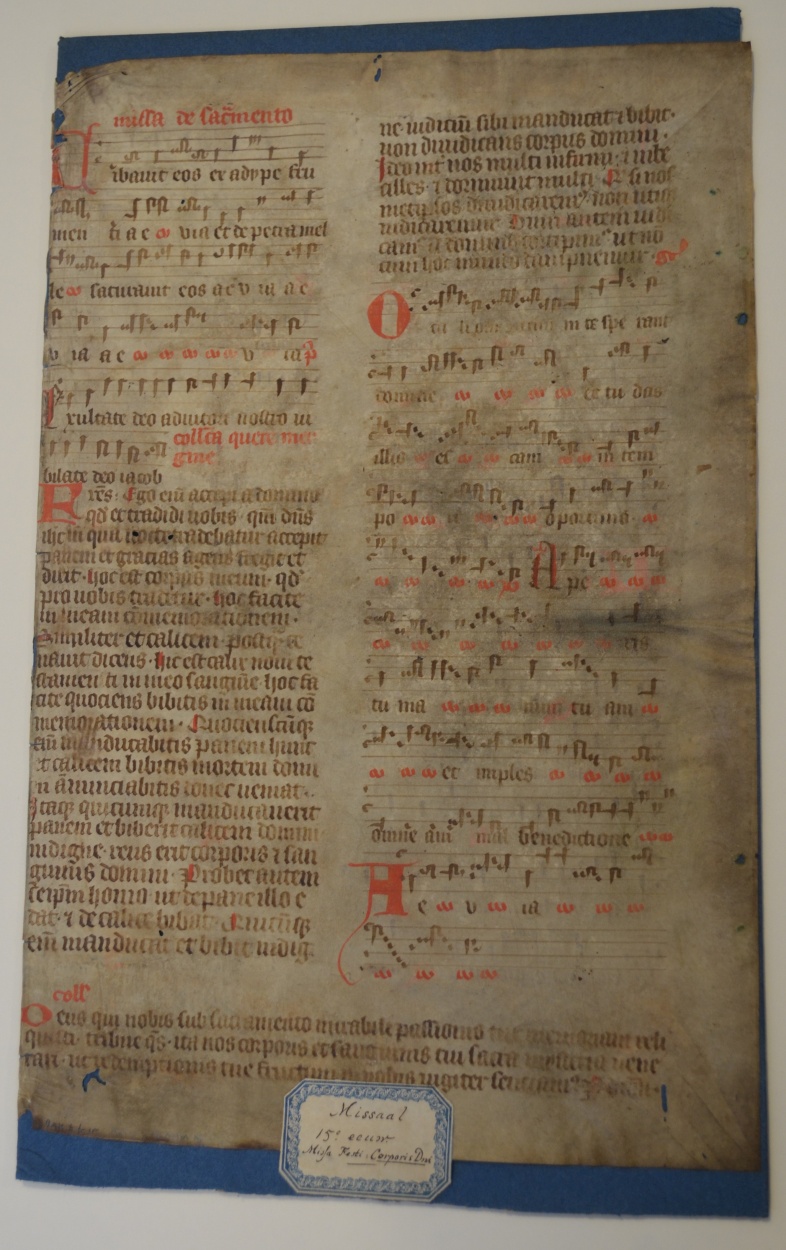 missa de sacmento
ibauit eos ex adype fru
men ti a e via et de petra mel
le saturauit eos a e v ia a e
v ia a e v ia p
Exultate deo adiutori nostro iu
collca quere mer
gine
bilate deo iacob
Fres Ego em accepi a domino
qd et tradidi uobis qm dns
ihc in qua nocte tradebatur accepit
panem et gracias agens fregit et
dixit hoc est corpus meum qd
pro uobis tradetur hoc facite
in meam comemorationem
Similiter et calicem postqm ce
nauit dicens hic est calix noui te
stamen ti in meo sanguine hoc fa
cite quociens bibitis in meam co
memorationem Quocienscuq
em manducabitis panem hunc
et calicem bibitis mortem domi
ni anunciabitis donec ueniat
Itaq quicumq manducauerit
panem et biberit calicem domini
indigne reus erit corporis 7 san
guinis domini Probet autem
seipm homo et sic de pane illo e
dat 7 de calice bibat Quicuq
em manducat et bibit indig
ne iudiciu sibi manducat 7 bibit
non diiudicans corpus domini
Ideo int nos multi infirmi 7 inbe
cilles 7 dormiunt multi Q si nos
metipsos diiudicarem non utiq
iudicaremur Dum autem iudi
camr a domino corripimr ut no
cum hoc mundo dampnemur
O cu li om in te spe rant
domine et tu das
illis es cam in tem
po re oportuno
A pe
ris
tu ma num tu am
et imples
omne ani mal benedictione
A e v ia
coll
Deus qui nobis sub sacramento mirabili passionis tue memoriam reli
quisti tribue qs ita nos corporis et sanguinis tui sacra misteria uene
rari ut redemptionis tue fructum in nobis iugiter senciamus
Missaal
15e eeuw
Missa Festi Corporis Dni